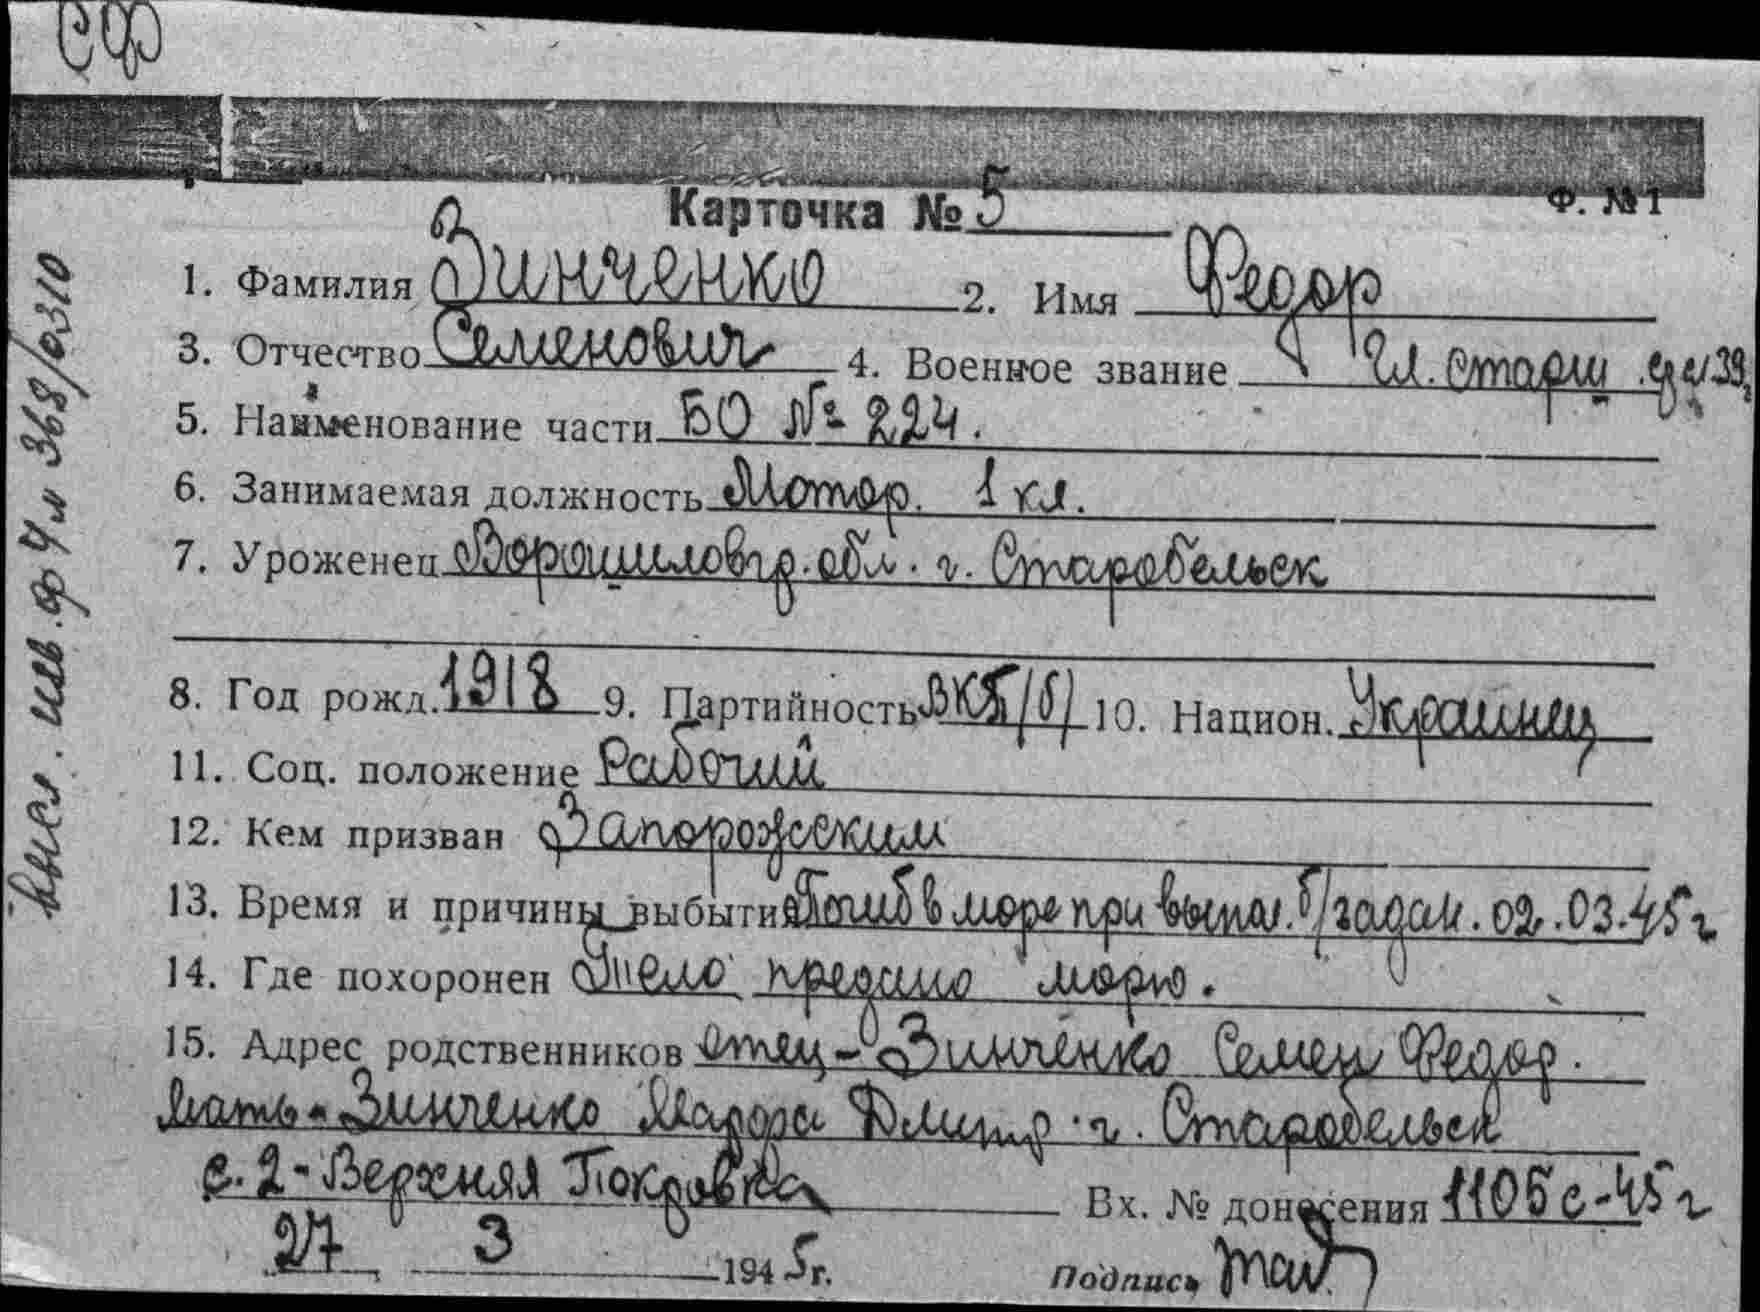 СФ
Карточка № 5
Ф. № 1
1. Фамилия Зинченко 2. Имя Федор
3. Отчество Семенович 4. Военное звание Гл. старш. 39
5. Наименование части БО № 224.
6. Занимаемая должность Мотор. 1 кл.
7. Уроженец Ворошиловгр. обл. г. Старобельск
8. Год рожд. 1918 9. Партийность ВКП/б/ 10. Национ. Украинец
11. Соц. положение Рабочий
12. Кем призван Запорожским
13. Время и причины выбытия Погиб в море при выпол. б/задан. 02.03.45 г
14. Где похоронен Тело предано морю.
15. Адрес родственников отец - Зинченко Семен Федор.
мать - Зинченко Дмитр. г. Старобельск
с. 2-Верхняя Покровка
Вх. № донесения 1105с-45 г
27 3 1945 г.
Подпись
ф 4 л 368/0310